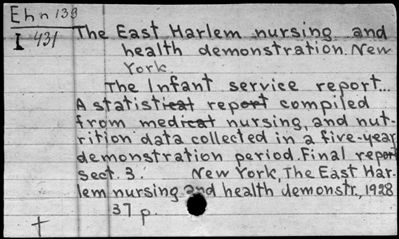 Ehn 138
I 431 The East Harlem nursing and
health demonstration. New
York.
The Infant service report...
A statistical report compiled
from medical nursing, and nut-
rition data collected in a five-year
demonstration period. Final report
sect. 3. New York, The East Har-
lem nursing and health demonstr., 1928
37 p.